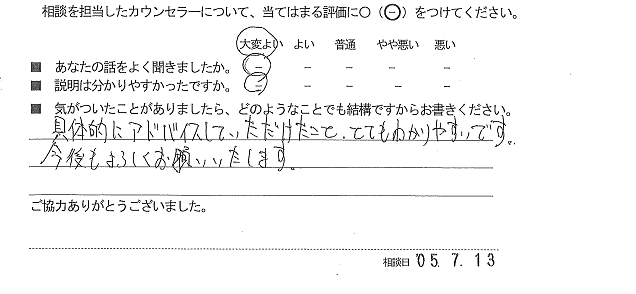 相談を担当したカウンセラーについて、当てはまる評価に○(⊖)をつけてください。
大変よい よい 普通 やや悪い 悪い
■ あなたの話をよく聞きましたか。 － － － － －
■ 説明は分かりやすかったですか。 － － － － －
■ 気がついたことがありましたら、どのようなことでも結構ですからお書きください。
具体的にアドバイスしていただけたこと、とてもわかりやすいです。
今後もよろしくお願いいたします。
ご協力ありがとうございました。
相談日 '05.7.13